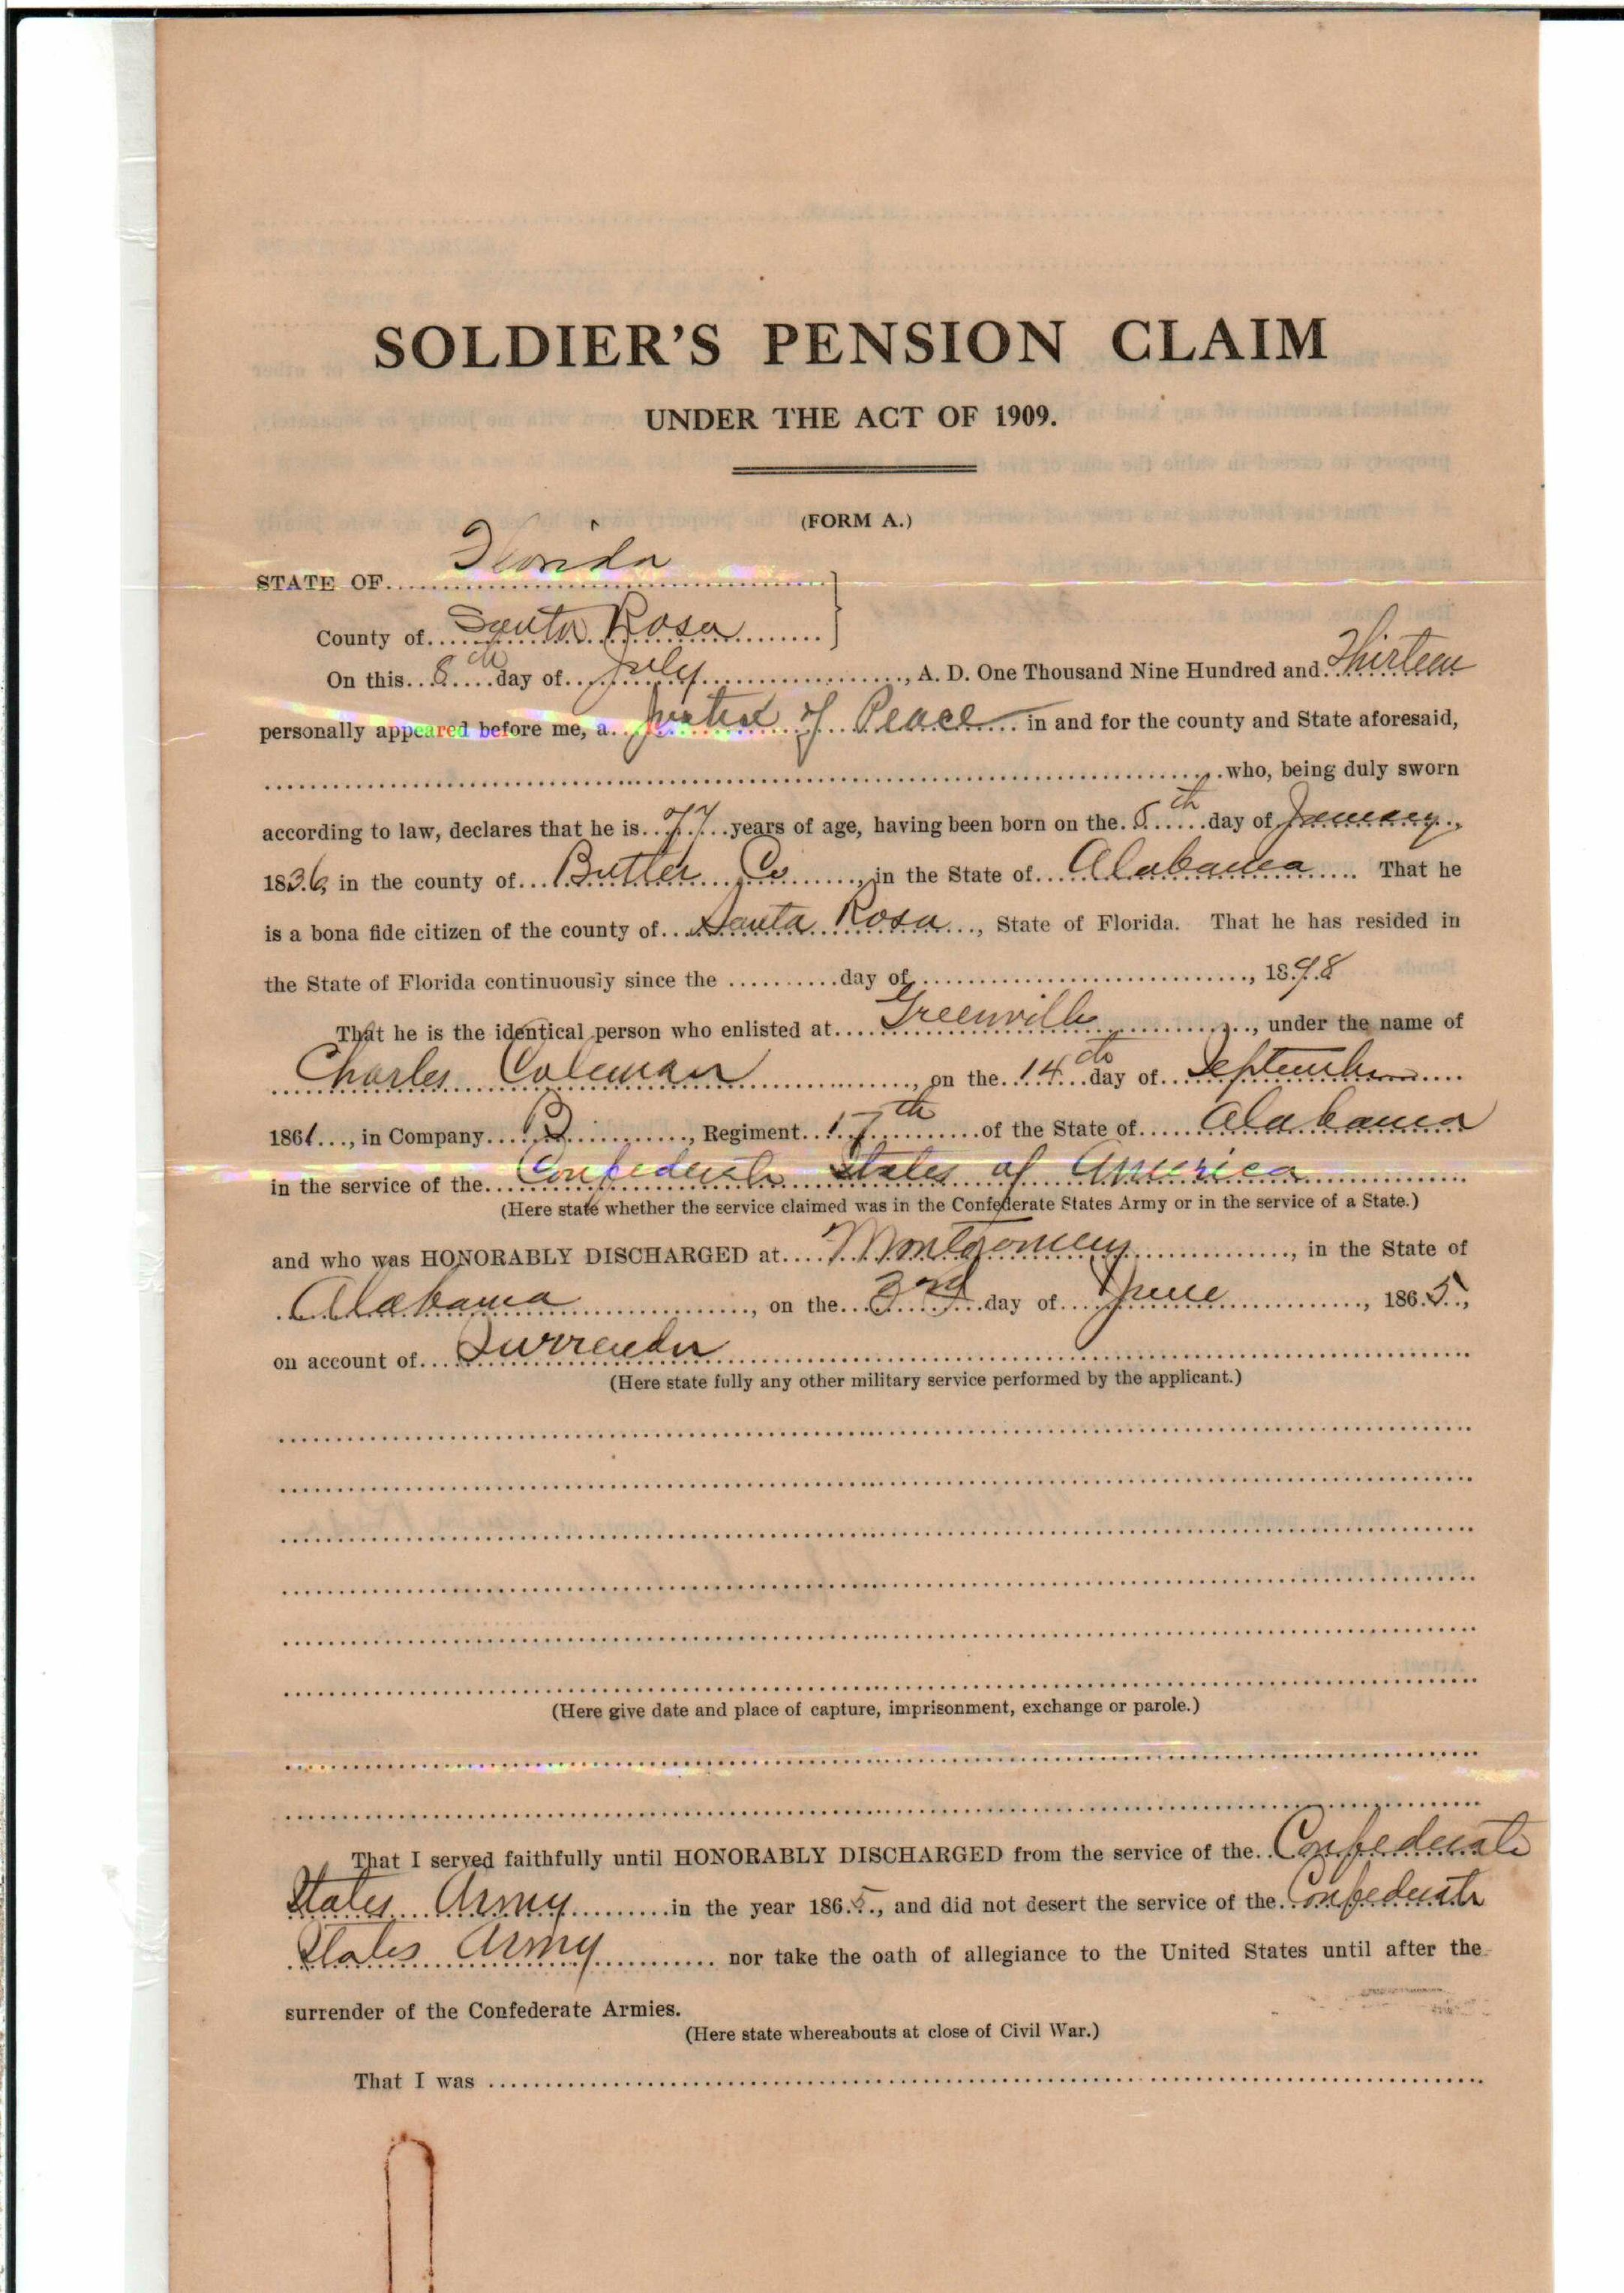 SOLDIER'S PENSION CLAIM
UNDER THE ACT OF 1909.
(FORM A.)
STATE OF Florida
County of Santa Rosa
On this 8th day of July, A. D. One Thousand Nine Hundred and Thirteen
personally appeared before me, a Justice of Peace in and for the county and State aforesaid,
who, being duly sworn
according to law, declares that he is 77 years of age, having been born on the day of January,
1836, in the county of Butler Co, in the State of Alabama That he
is a bona fide citizen of the county of Santa Rosa, State of Florida. That he has resided in
the State of Florida continuously since the day of, 1898
That he is the identical person who enlisted at Greenville, under the name of
Charles Coleman, on the 14th day of September
1861, in Company B, Regiment 17th of the State of Alabama
in the service of the Confederate States of America
(Here state whether the service claimed was in the Confederate States Army or in the service of a State.)
and who was HONORABLY DISCHARGED at Montgomery, in the State of
Alabama, on the 3rd day of June, 1865,
on account of Surrender
(Here state fully any other military service performed by the applicant.)
(Here give date and place of capture, imprisonment, exchange or parole.)
That I served faithfully until HONORABLY DISCHARGED from the service of the Confederate
States Army in the year 1865, and did not desert the service of the Confederate
States Army nor take the oath of allegiance to the United States until after the
surrender of the Confederate Armies.
(Here state whereabouts at close of Civil War.)
That I was